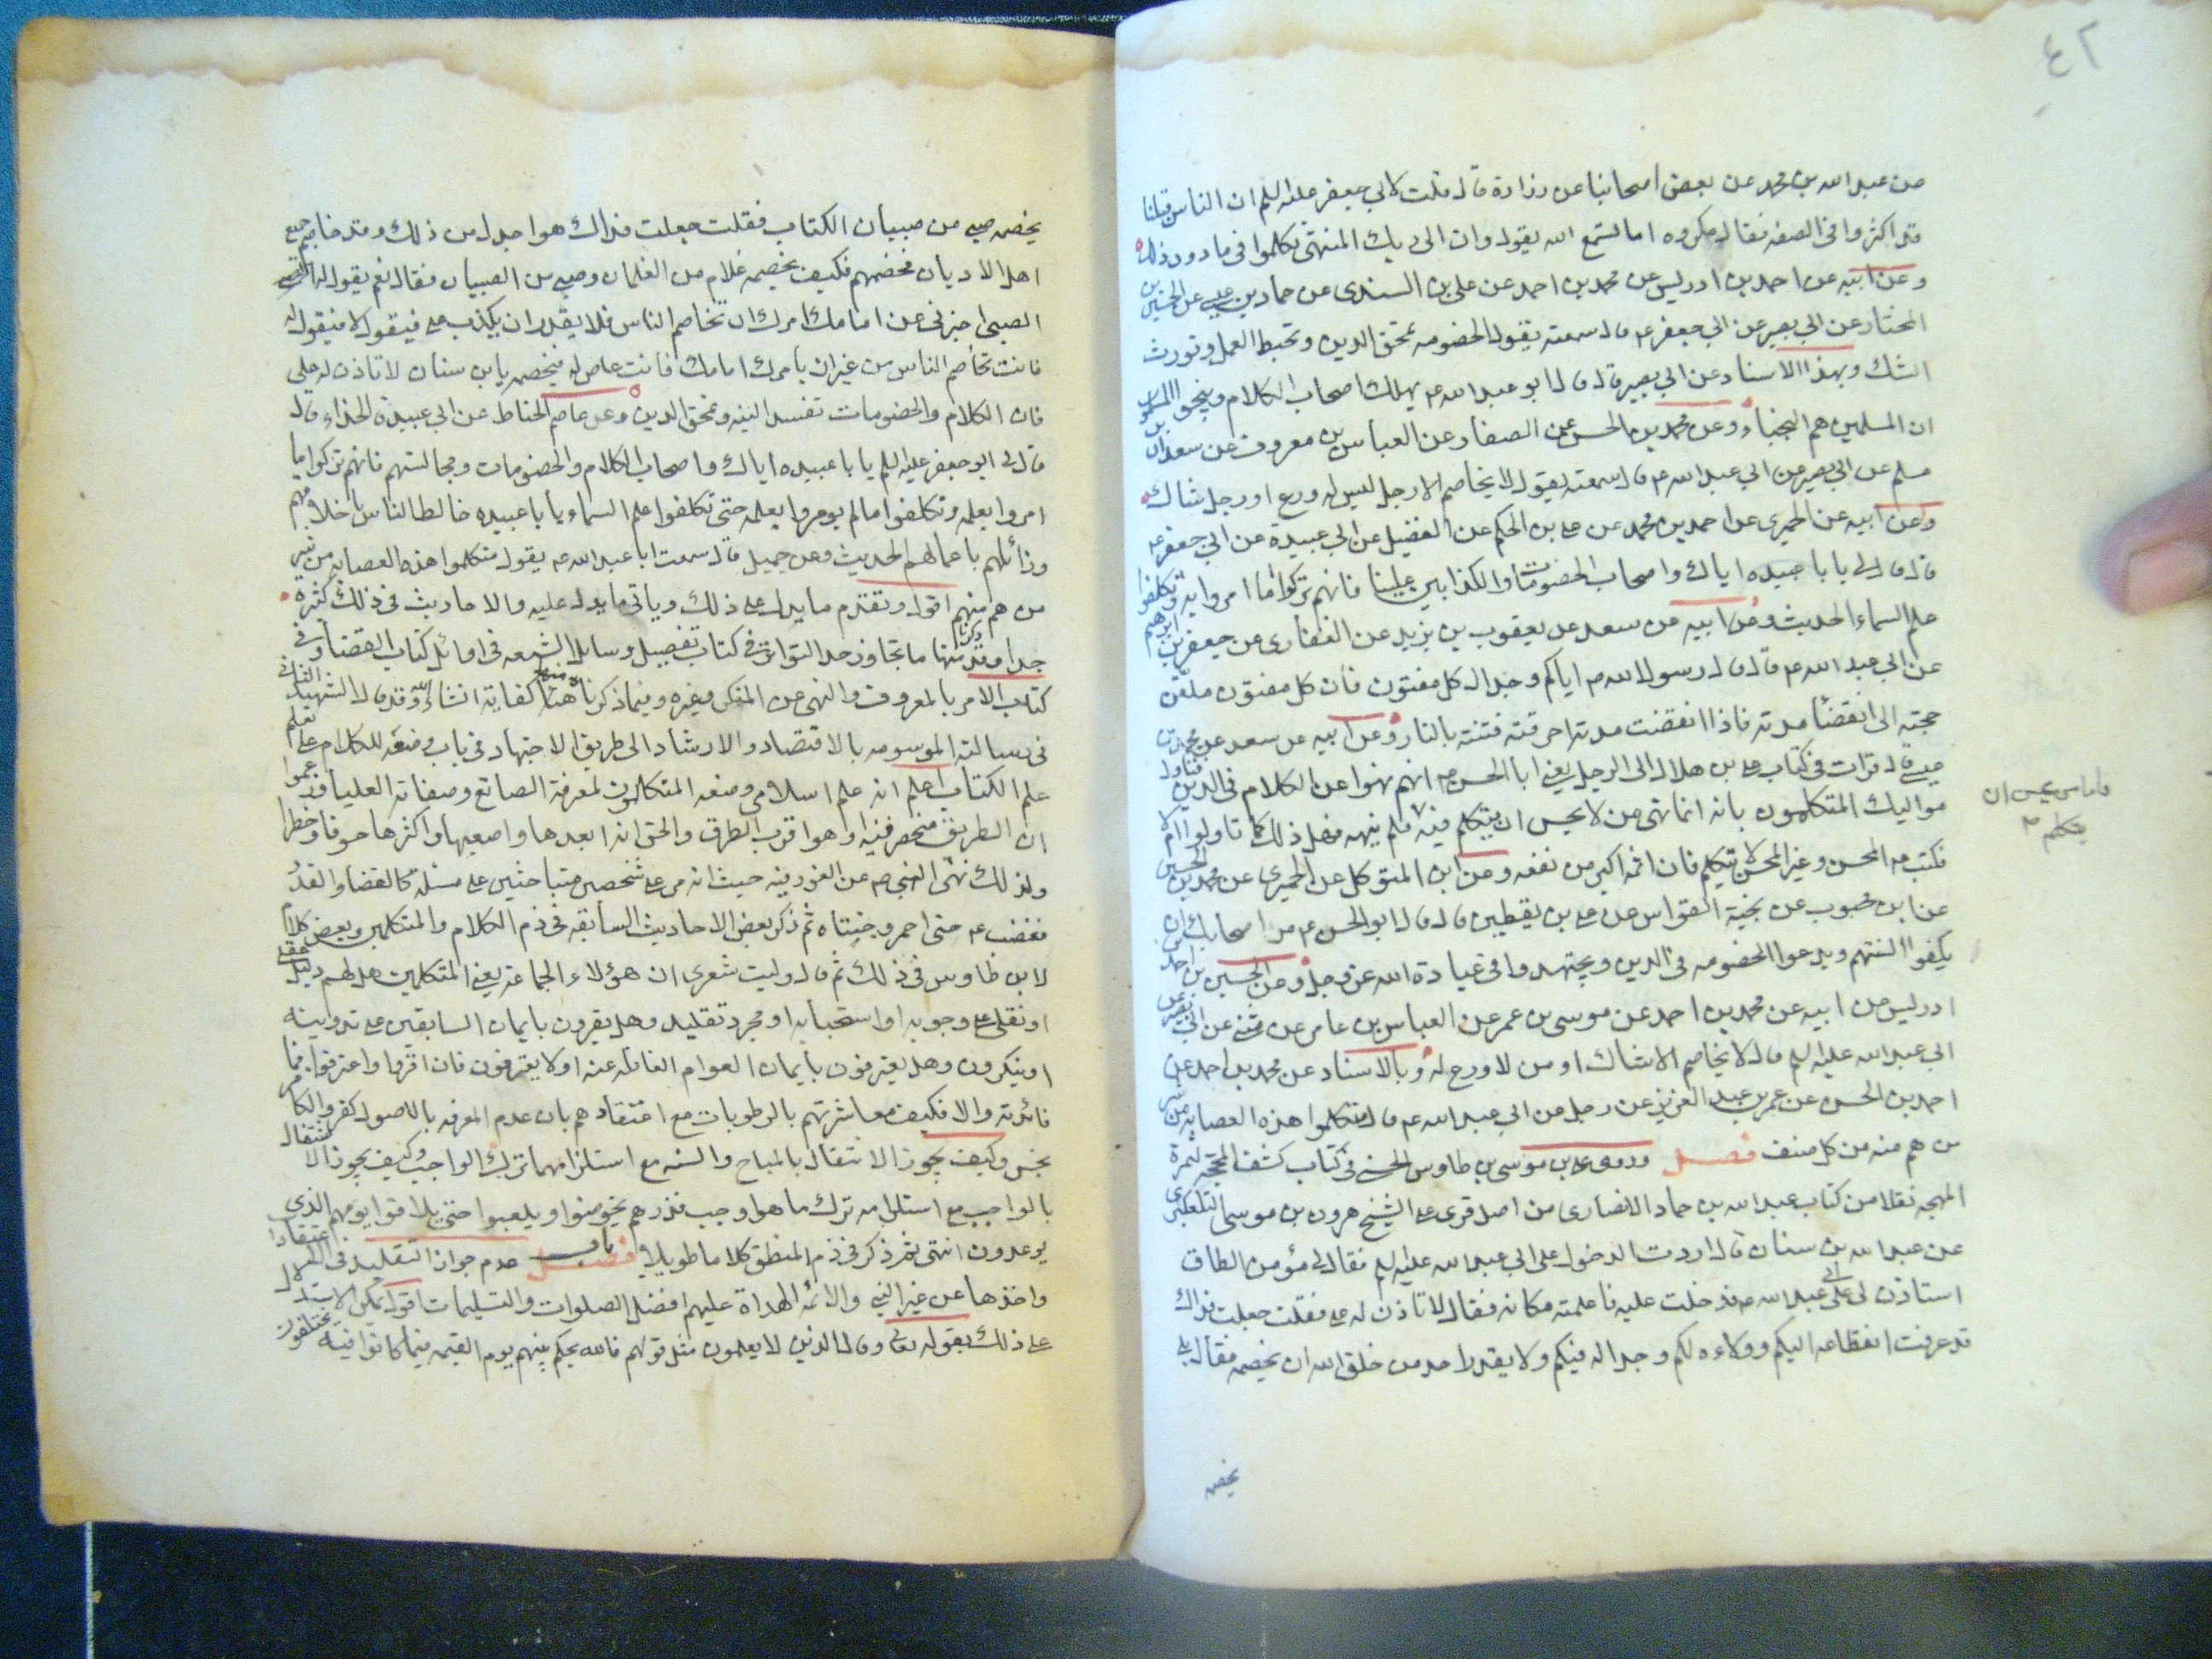 ٤٢
عن عبد الله بن محمد عن بعض اصحابنا عن زرارة قال قلت لابي جعفر عليه السلم ان الناس قبلنا
قد اكثروا في الصفه فقال مكروه اما تسمع الله يقول وان الى ربك المنتهى تكلموا في ما دون ذلك
وعن ابيه عن احمد بن ادريس عن محمد بن احمد عن علي بن السندى عن حماد بن عيسى عن الحسين بن
المختار عن ابي بصير عن ابي جعفر ع قال سمعته يقول الخصومه تمحق الدين وتحبط العمل وتورث
الشك وبهذا الاسناد عن ابي بصير قال قال ابو عبد الله ع يهلك اصحاب الكلام وينجو المسلمون
ان المسلمين هم النجباء وعن محمد بن الحسن عن الصفار عن العباس بن معروف عن سعدان بن
مسلم عن ابي بصير عن ابي عبد الله ع قال سمعته يقول لا يخاصم الا رجل ليس له ورع او رجل شاك
وعن ابيه عن الحميرى عن احمد بن محمد عن على بن الحكم عن الفضيل عن ابي عبيدة عن ابي جعفر ع
قال قال لي يا با عبيده اياك واصحاب الخصومات والكذابين علينا فانهم تركوا ما امروا به وتكلفوا
علم السماء الحديث وعن ابيه عن سعد عن يعقوب بن يزيد عن الغفارى عن جعفر بن ابرهيم
عن ابي عبد الله ع قال قال رسول الله ص اياكم وجدال كل مفتون فان كل مفتون ملقن
حجته الى انقضا مدته فاذا انقضت مدته احرقته فتنته بالنار وعن ابيه عن سعد عن محمد بن
عيسى قال قرات في كتاب على بن هلال الى الرجل يعنى ابا الحسن ع انهم نهوا عن الكلام في الدين فتاول
مواليك المتكلمون بانه انما نهى من لا يحسن ان يتكلم فيه فاما من يحسن ان يتكلم فلم ينهه فهل ذلك كما تاولوا ام لا
فكتب ع المحسن وغير المحسن لا يتكلم فان اثمه اكبر من نفعه وعن ابن المتوكل عن الحميرى عن محمد بن الحسين
عن ابن محبوب عن نجية القواس عن على بن يقطين قال قال ابو الحسن ع مر اصحابك ان
يكفوا السنتهم ويدعوا الخصومه في الدين ويجتهدوا في عبادة الله عز وجل وعن الحسين بن احمد بن
ادريس عن ابيه عن محمد بن احمد عن موسى بن عمر عن العباس بن عامر عن مثنى عن ابي بصير عن
ابي عبد الله عليه السلم قال لا يخاصم الا شاك او من لا ورع له وبالاسناد عن محمد بن احمد عن
احمد بن الحسن عن عمر بن عبد العزيز عن رجل عن ابي عبد الله ع قال متكلموا هذه العصابه من شر
من هم منه من كل صنف فصل وروى على بن موسى بن طاوس الحسنى في كتاب كشف المحجه لثمرة
المهجه نقلا من كتاب عبد الله بن حماد الانصارى من اصل قرى على الشيخ هرون بن موسى التلعكبرى
عن عبد الله بن سنان قال اردت الدخول على ابي عبد الله عليه السلم فقال لي مؤمن الطاق
استاذن لي على ابي عبد الله ع فدخلت عليه فاعلمته مكانه فقال لا تاذن له على فقلت جعلت فداك
قد عرفت انقطاعه اليكم وولاءه لكم وجداله فيكم ولا يقدر احد من خلق الله ان يخصمه فقال بلى
يخصمه
يخصمه صبى من صبيان الكتاب فقلت جعلت فداك هو اجدل من ذلك وقد خاصم جميع
اهل الاديان فخصمهم فكيف يخصمه غلام من الغلمان وصبى من الصبيان فقال نعم يقول له الصبى
اخبرنى عن امامك امرك ان تخاصم الناس فلا يقدر ان يكذب على فيقول لا فيقول له
فانت تخاصم الناس من غير ان يامرك امامك فانت عاص له فيخصمه يابن سنان لا تاذن له على
فان الكلام والخصومات تفسد النيه وتمحق الدين وعن عاصم الحناط عن ابي عبيدة الحذاء قال
قال لي ابو جعفر عليه السلم يا با عبيده اياك واصحاب الكلام والخصومات ومجالستهم فانهم تركوا ما
امروا بعلمه وتكلفوا ما لم يومروا بعلمه حتى تكلفوا علم السماء يا با عبيده خالطا الناس باخلاقهم
وزائلهم باعمالهم الحديث وعن جميل قال سمعت ابا عبد الله ع يقول متكلموا هذه العصابه من شر
من هم منهم اقول وتقدم ما يدل على ذلك وياتى ما يدل عليه والاحاديث في ذلك كثيره
جدا وقد ذكرنا منها ما تجاوز حد التواتر في كتاب تفصيل وسايل الشيعه في اوائل كتاب القضا وفي
كتاب الامر بالمعروف والنهى عن المنكر وغيره وفيما ذكرناه منها هنا كفاية انشاء الله وقد قال الشهيد الثاني
في رسالته الموسومه بالاقتصاد والارشاد الى طريق الاجتهاد في باب وضعه للكلام على تعلم
علم الكتاب اعلم انه علم اسلامى وضعه المتكلمون لمعرفة الصانع وصفاته العليا وزعموا
ان الطريق منحصر فيه او هو اقرب الطرق والحق انه ابعدها واصعبها واكثرها خوفا وخطرا
ولذلك نهى النبي ص عن الغور فيه حيث انه مر على شخصين متباحثين على مسئلة كالقضا والقدر
فغضب ع حتى احمر وجنتاه ثم ذكر بعض الاحاديث السابقه في ذم الكلام والمتكلمين وبعض كلام
لابن طاوس في ذلك ثم قال وليت شعرى ان هؤلاء الجماعة يعنى المتكلمين هل لهم دليل عقلى
او نقلى على وجوبه او استحبابه او مجرد تقليد وهل يقرون بايمان السابقين على تدوينه
او ينكرون وهل يعترفون بايمان العوام الغافله عنه او لا يعترفون فان اقروا واعترفوا فما
فائدته والا فكيف معاشرتهم بالرطوبات مع اعتقادهم بان عدم المعرفه بالاصول كفر والكافر
نجس وكيف يجوز الاشتغال بالمباح والسنه مع استلزامهما ترك الواجب وكيف يجوز الاشتغال
بالواجب مع استلزامه ترك ما هو اوجب فذرهم يخوضوا ويلعبوا حتى يلاقوا يومهم الذى
يوعدون انتهى ثم ذكر في ذم المنطق كلاما طويلا باب عدم جواز التقليد في الاعتقادات
واخذها عن غير النبي والائمه الهداة عليهم افضل الصلوات والتسليمات اقول يمكن الاستدلال
على ذلك بقوله تعالى وقال الذين لا يعلمون مثل قولهم فالله يحكم بينهم يوم القيمه فيما كانوا فيه يختلفون